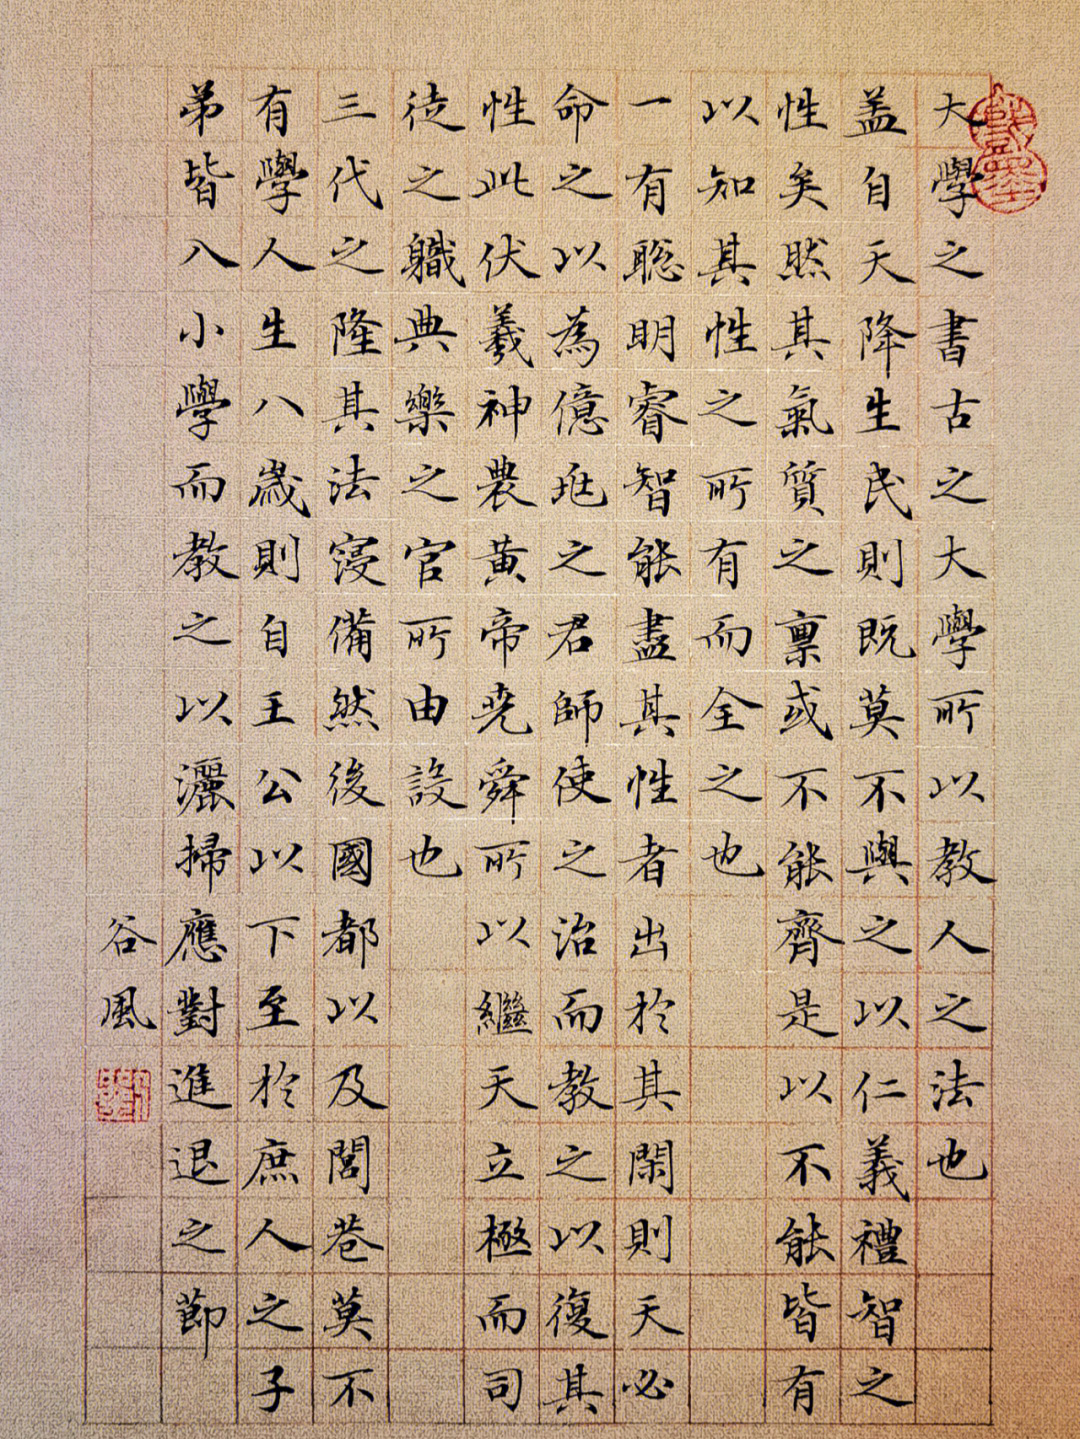 大學之書古之大學所以教人之法也
盖自天降生民則既莫不與之以仁義禮智之
性矣然其氣質之禀或不能齊是以不能皆有
以知其性之所有而全之也
一有聡明睿智能盡其性者出於其閑則天必
命之以為億兆之君師使之治而教之以復其
性此伏羲神農黄帝尭舜所以繼天立極而司
徒之軄典樂之官所由設也
三代之隆其法寖備然後國都以及閭巷莫不
有學人生八歳則自王公以下至於庶人之子
弟皆八小學而教之以灑掃應對進退之節
谷風